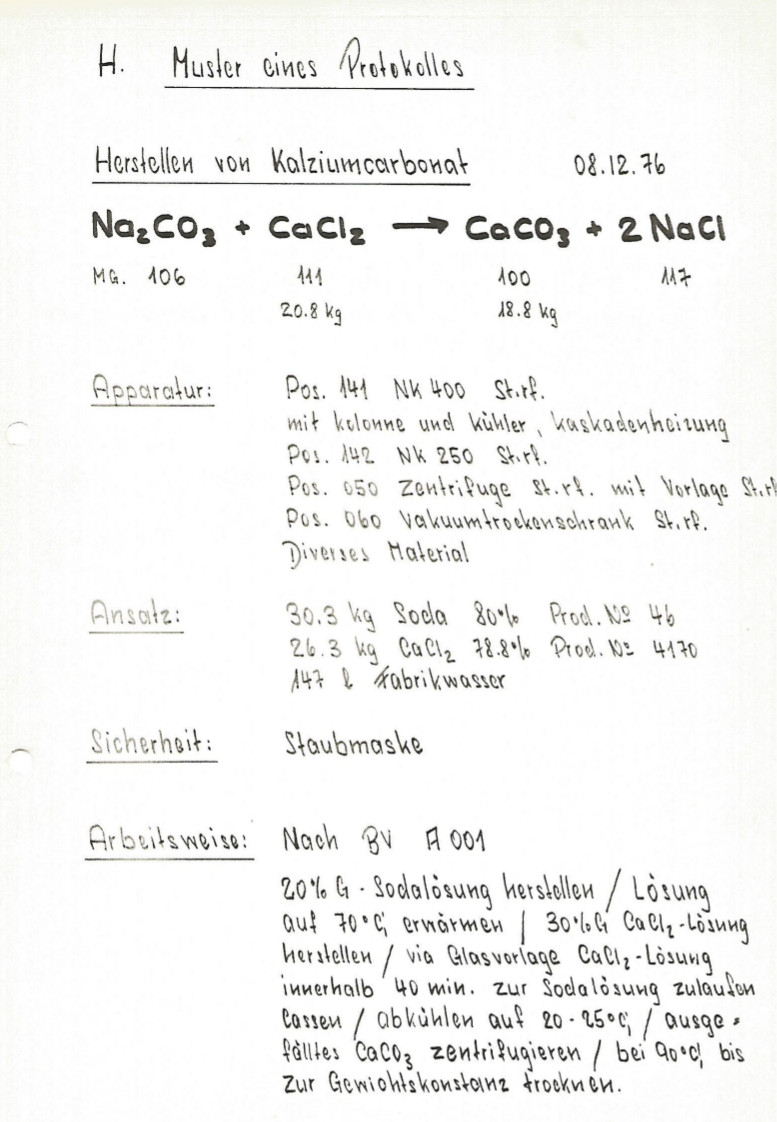 H. Muster eines Protokolles
Herstellen von Kalziumcarbonat 08.12.76
Na₂CO₃ + CaCl₂ → CaCO₃ + 2 NaCl
MG. 106 111 100 117
20.8 kg 18.8 kg
Apparatur: Pos. 141 Nk 400 St.rf.
mit Kolonne und Kühler, Kaskadenheizung
Pos. 142 Nk 250 St.rf.
Pos. 050 Zentrifuge St.rf. mit Vorlage St.rf
Pos. 060 Vakuumtrockenschrank St.rf.
Diverses Material
Ansatz: 30.3 kg Soda 80% Prod. Nº 46
26.3 kg CaCl₂ 78.8% Prod. Nº 4170
147 l Fabrikwasser
Sicherheit: Staubmaske
Arbeitsweise: Nach BV A 001
20% G - Sodalösung herstellen / Lösung
auf 70°C erwärmen / 30% G CaCl₂-Lösung
herstellen / via Glasvorlage CaCl₂-Lösung
innerhalb 40 min. zur Sodalösung zulaufen
lassen / abkühlen auf 20-25°C / ausge=
fälltes CaCO₃ zentrifugieren / bei 90°C bis
zur Gewichtskonstanz trocknen.